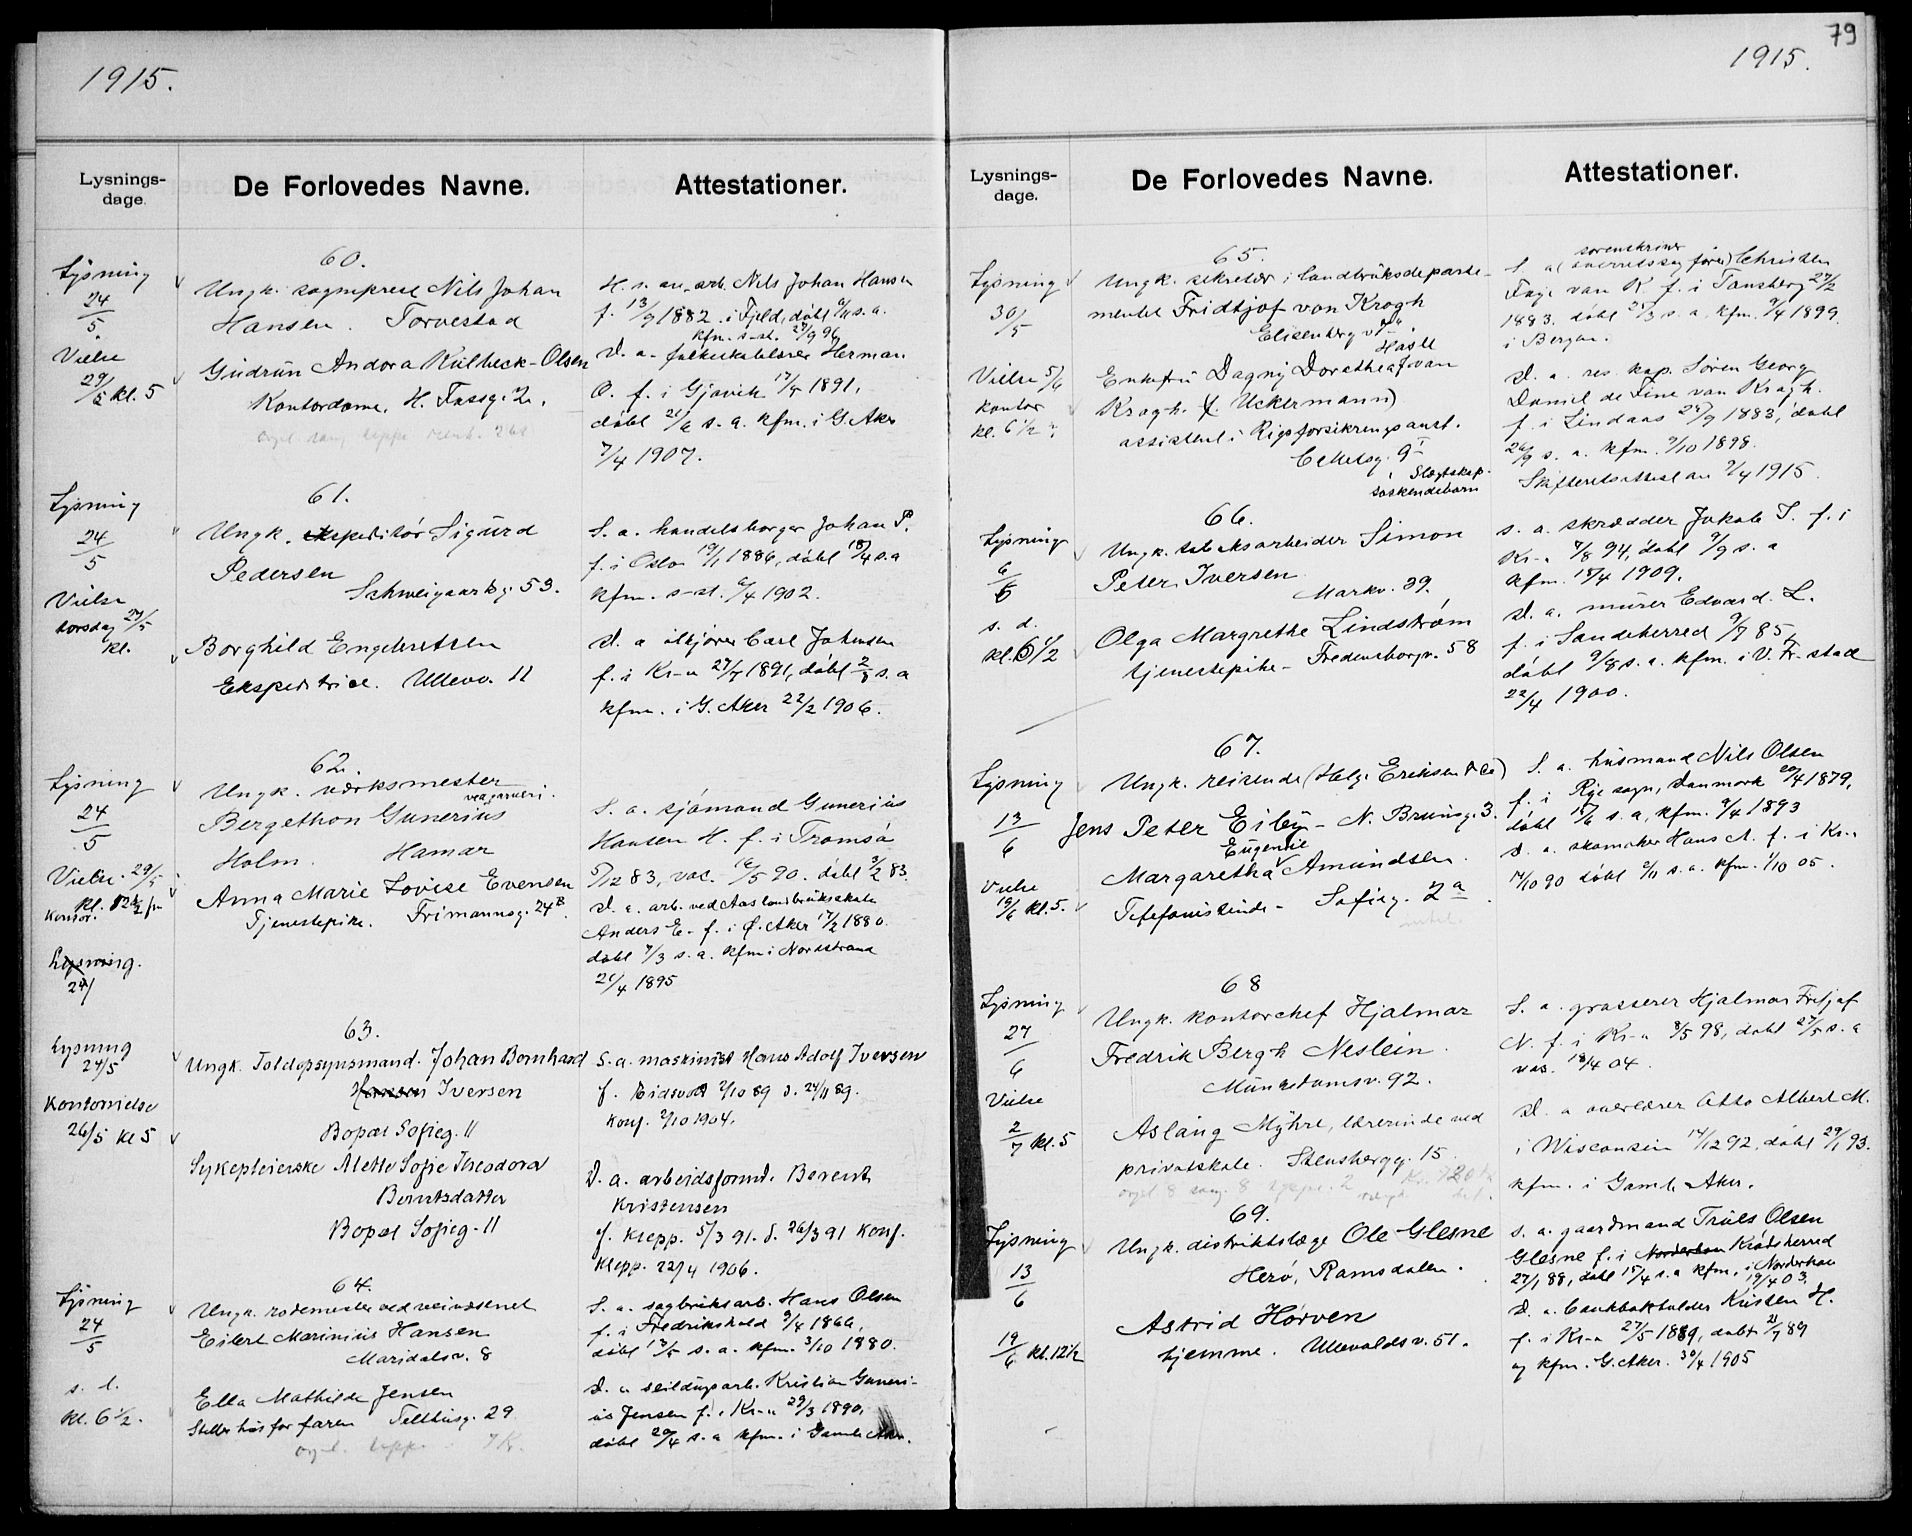 79
1915.
Lysnings-
dage.
De Forlovedes Navne.
Attestationer.
60.
Lysning
24
5
Vielse
29/5 kl. 5
Ungk. sogneprest Nils Johan
Hansen. Torvestad
Gudrun Andora Kulbeck-Olsen
Kontordame. H. Tassg. 2.
H. s. av arb. Nils Johan Hansen
f. 13/9 1882 i Fjeld, døbt s. a.
kfm. s-st. 27/9 96
D. a. folkeskolelærer Herman
O. f. i Gjøvik 1891,
døbt 21/6 s. a. kfm. i G. Aker
7/4 1907.
61.
Lysning
24
5
Vielse
torsdag 27/5
kl.
Ungk. ekspeditør Sigurd
Pedersen
Schweigaardsg. 53.
Borghild Engebretsen
Ekspeditrice. Ullevv. 11
S. a. handelsborger Johan P.
f. i Oslo 19/1 1886, døbt 18/4 s. a
kfm. s-st. 6/4 1902.
D. a ølkjører Carl Johansen
f. i Kr-a 27/7 1891, døbt 2/8 s. a
kfm. i G. Aker 22/2 1906.
62.
Lysning
24
5
Vielse. 29/5
kl. 12 1/2 fm
Kontor.
Ungk. verksmester
ved garveri.
Bergethon Gunerius
Holm. Hamar
Anna Marie Lovise Evensen
Tjenestepike. Frimannsg. 24 B.
S. a. sjømand Gunerius
Hansen H. f. i Tromsø
5/12 83, vac. 16/5 90. døbt 3/2 83.
D. a. arb. ved Aas landbruksskole
Anders E. f. i Ø. Aker 17/2 1880.
døbt 7/3 s. a. kfm i Nordstrand
21/4 1895
Lysning.
24/
63.
Lysning
24/5
Kontorvielse
26/5 Kl 5
Ungk. Toldopsynsmand. Johan Bernhard
Hansen Iversen
Bopæl Sofieg. 11
Sykepleierske Alette Sofie Theodora
Berntsdatter
Bopæl Sofieg. 11
S. a. maskinist Hans Adolf Iversen
f. Eidsvold 2/10 89 d. 24/11 89.
Konf. 2/10 1904.
D. a. arbeidsformd. Berent
Kristensen
f. Klepp. 5/3 91. d. 26/3 91 Konf.
Klepp. 22/4 1906.
64.
Lysning
24
5
s. d.
kl. 6 1/2.
Ungk. rodemester ved veivæsenet
Eilert Marinius Hansen
Maridalsv. 8
Ella Mathilde Jensen
Steller hus for faren Telthusg. 29
S. a. sagbruksarb. Hans Olsen
f. i Fredrikshald 9/4 1866,
døbt 13/5 s. a. kfm. 3/10 1880.
D. a seildugsarb. Kristian Guneri-
us Jensen f. i Kr-a 29/3 1890,
døbt 20/4 s. a kfm. i Gamle Aker.
1915.
Lysnings-
dage.
De Forlovedes Navne.
Attestationer.
65.
Lysning
30/5
Vielse 5/6
kontor
kl. 6 1/2
Ungk. sekretær i landbruksdeparte-
mentet Fridtjof von Krogh
Elisenberg v.
Hasle
Enkefru Dagny Dorothea f von
Krogh. (f. Uckermann)
assistent i Rigsforsikringsanst.
Celiusg. 9
Slegtskap.
søskendebarn
sorenskriver
S. a (overretssagfører) Christen
Faye von K f. i Tønsberg 27/2
1883. døbt 25/3 s. a, kfm. 9/4 1899.
i Bergen.
D. a. res. kap. Søren Georg
Daniel de Fine von Krogh.
f. i Lindaas 1883, døbt
26/9 s. a. kfm. 9/10 1898.
Skifteretsattest av 1915.
66.
Lysning
6
6
s. d.
kl. 6 1/2
Ungk. tobaksarbeider Simon
Peter Iversen
Markv. 39.
Olga Margrethe Lindstrøm
tjenestepike - Fredensborgv. 58
S. a. skrædder Jakob I. f. i
Kr-a 7/8 94, døbt 9/9 s. a
kfm. 18/4 1909.
D. a. murer Edvard. L.
f. i Sandeherred 9/7 85,
døbt 9/8 s. a. kfm. i V. Fr-stad
22/4 1900.
67.
Lysning
13
6
Vielse
19/6 kl. 5.
Ungk. reisende (Helge Eriksen & Co)
Jens Peter Eiby - N. Brunsg. 3.
Eugenie
Margaretha Amundsen.
Telefonistinde - Sofieg. 2 a
S. a. husmand Nils Olsen
f. i Rye sogn, Danmark 20/4 1879,
døbt s. a, kfm. 9/4 1893
D. a. skomaker Hans A. f. i Kr-a
14/10 90 døbt s. a. kfm. 1/10 05.
68
Lysning
27
6
Vielse
2
7 kl. 5
Ungk. kontorchef Hjalmar
Fredrik Bergh Neslein.
Munkedamsv. 92.
Aslaug Myhre, lærerinde ved
privatskole. Stensbergg. 15
S. a. grosserer Hjalmar Fritjof
N. f. i Kr-a 8/5 98, døbt 27/5 s. a
vac. 18/4 04.
D. a overlærer Otto Albert M.
i Wisconsin 14/12 92, døbt 29/1 93.
kfm. i Gaml. Aker.
69.
Lysning
13
6
19
6 kl. 12 1/2
Ungk. distriktslæge Ole Glesne
Herø, Romsdalen.
Astrid Hørven
hjemme. Ullevoldsv. 51.
S. a. gaardmand Truls Olsen
Glesne f. i Norderhov Krødsherred
27/1 88, døbt 15/4 s. a kfm. i Norderhov
19/4 03.
D. a. bankbokholder Kristen H.
f. i Kr-a 27/5 1889, døbt 21/7 89
og kfm. G. Aker. 30/4 1905